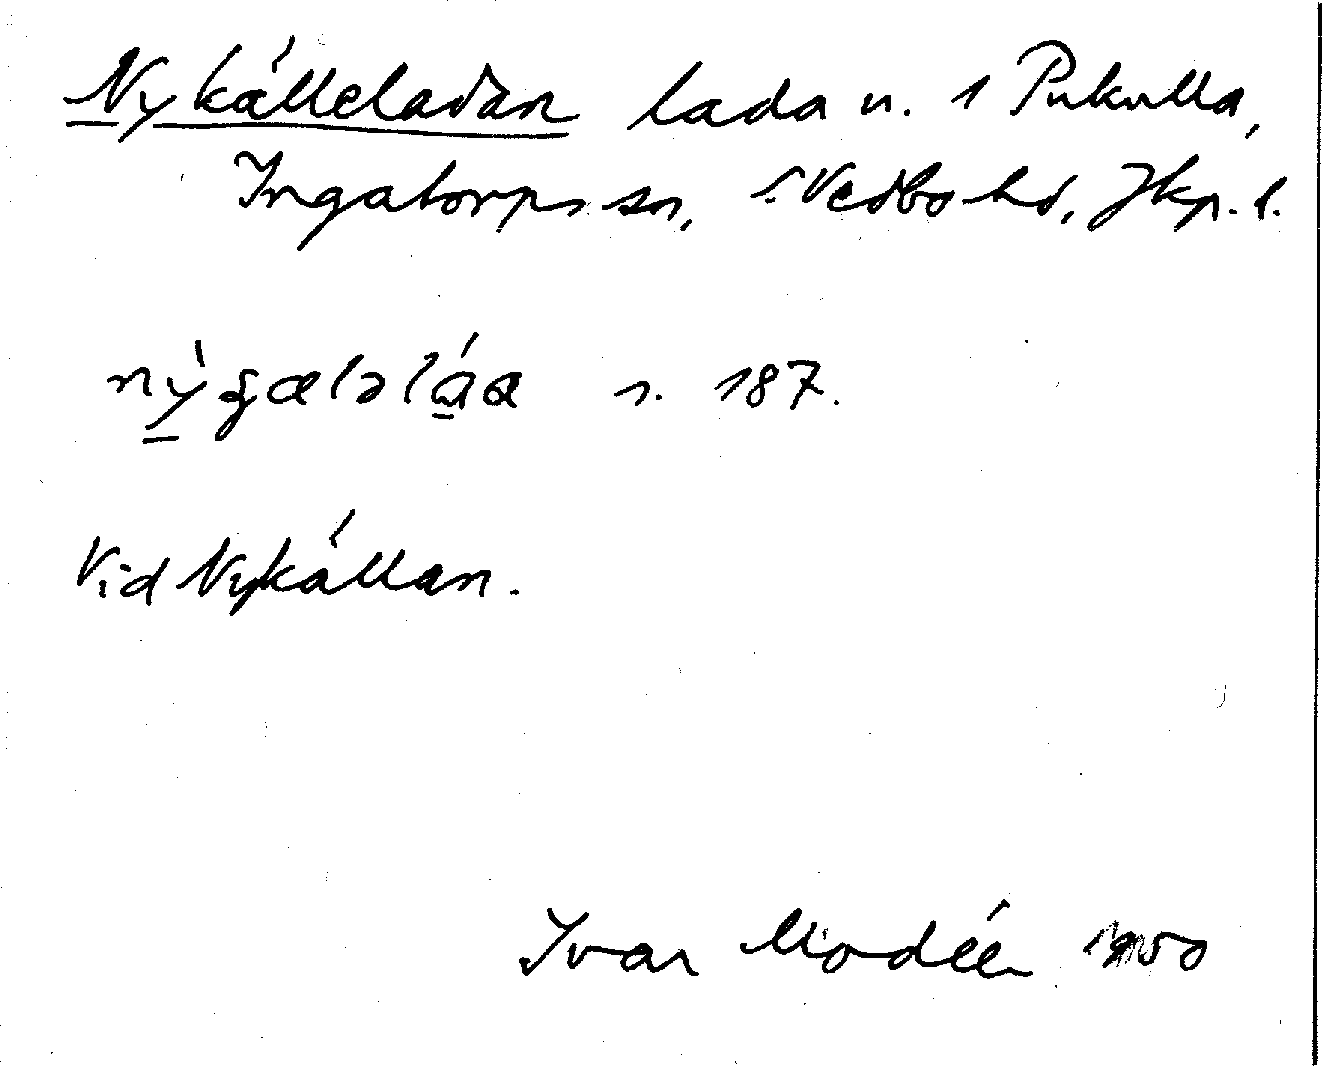 Nykälleladan lada u. 1 Pukulla,
Ingatorps sn, S. Vedbo hd, Jkp. l.
s. 187.
Vid Nykällan.
Ivar Modéer